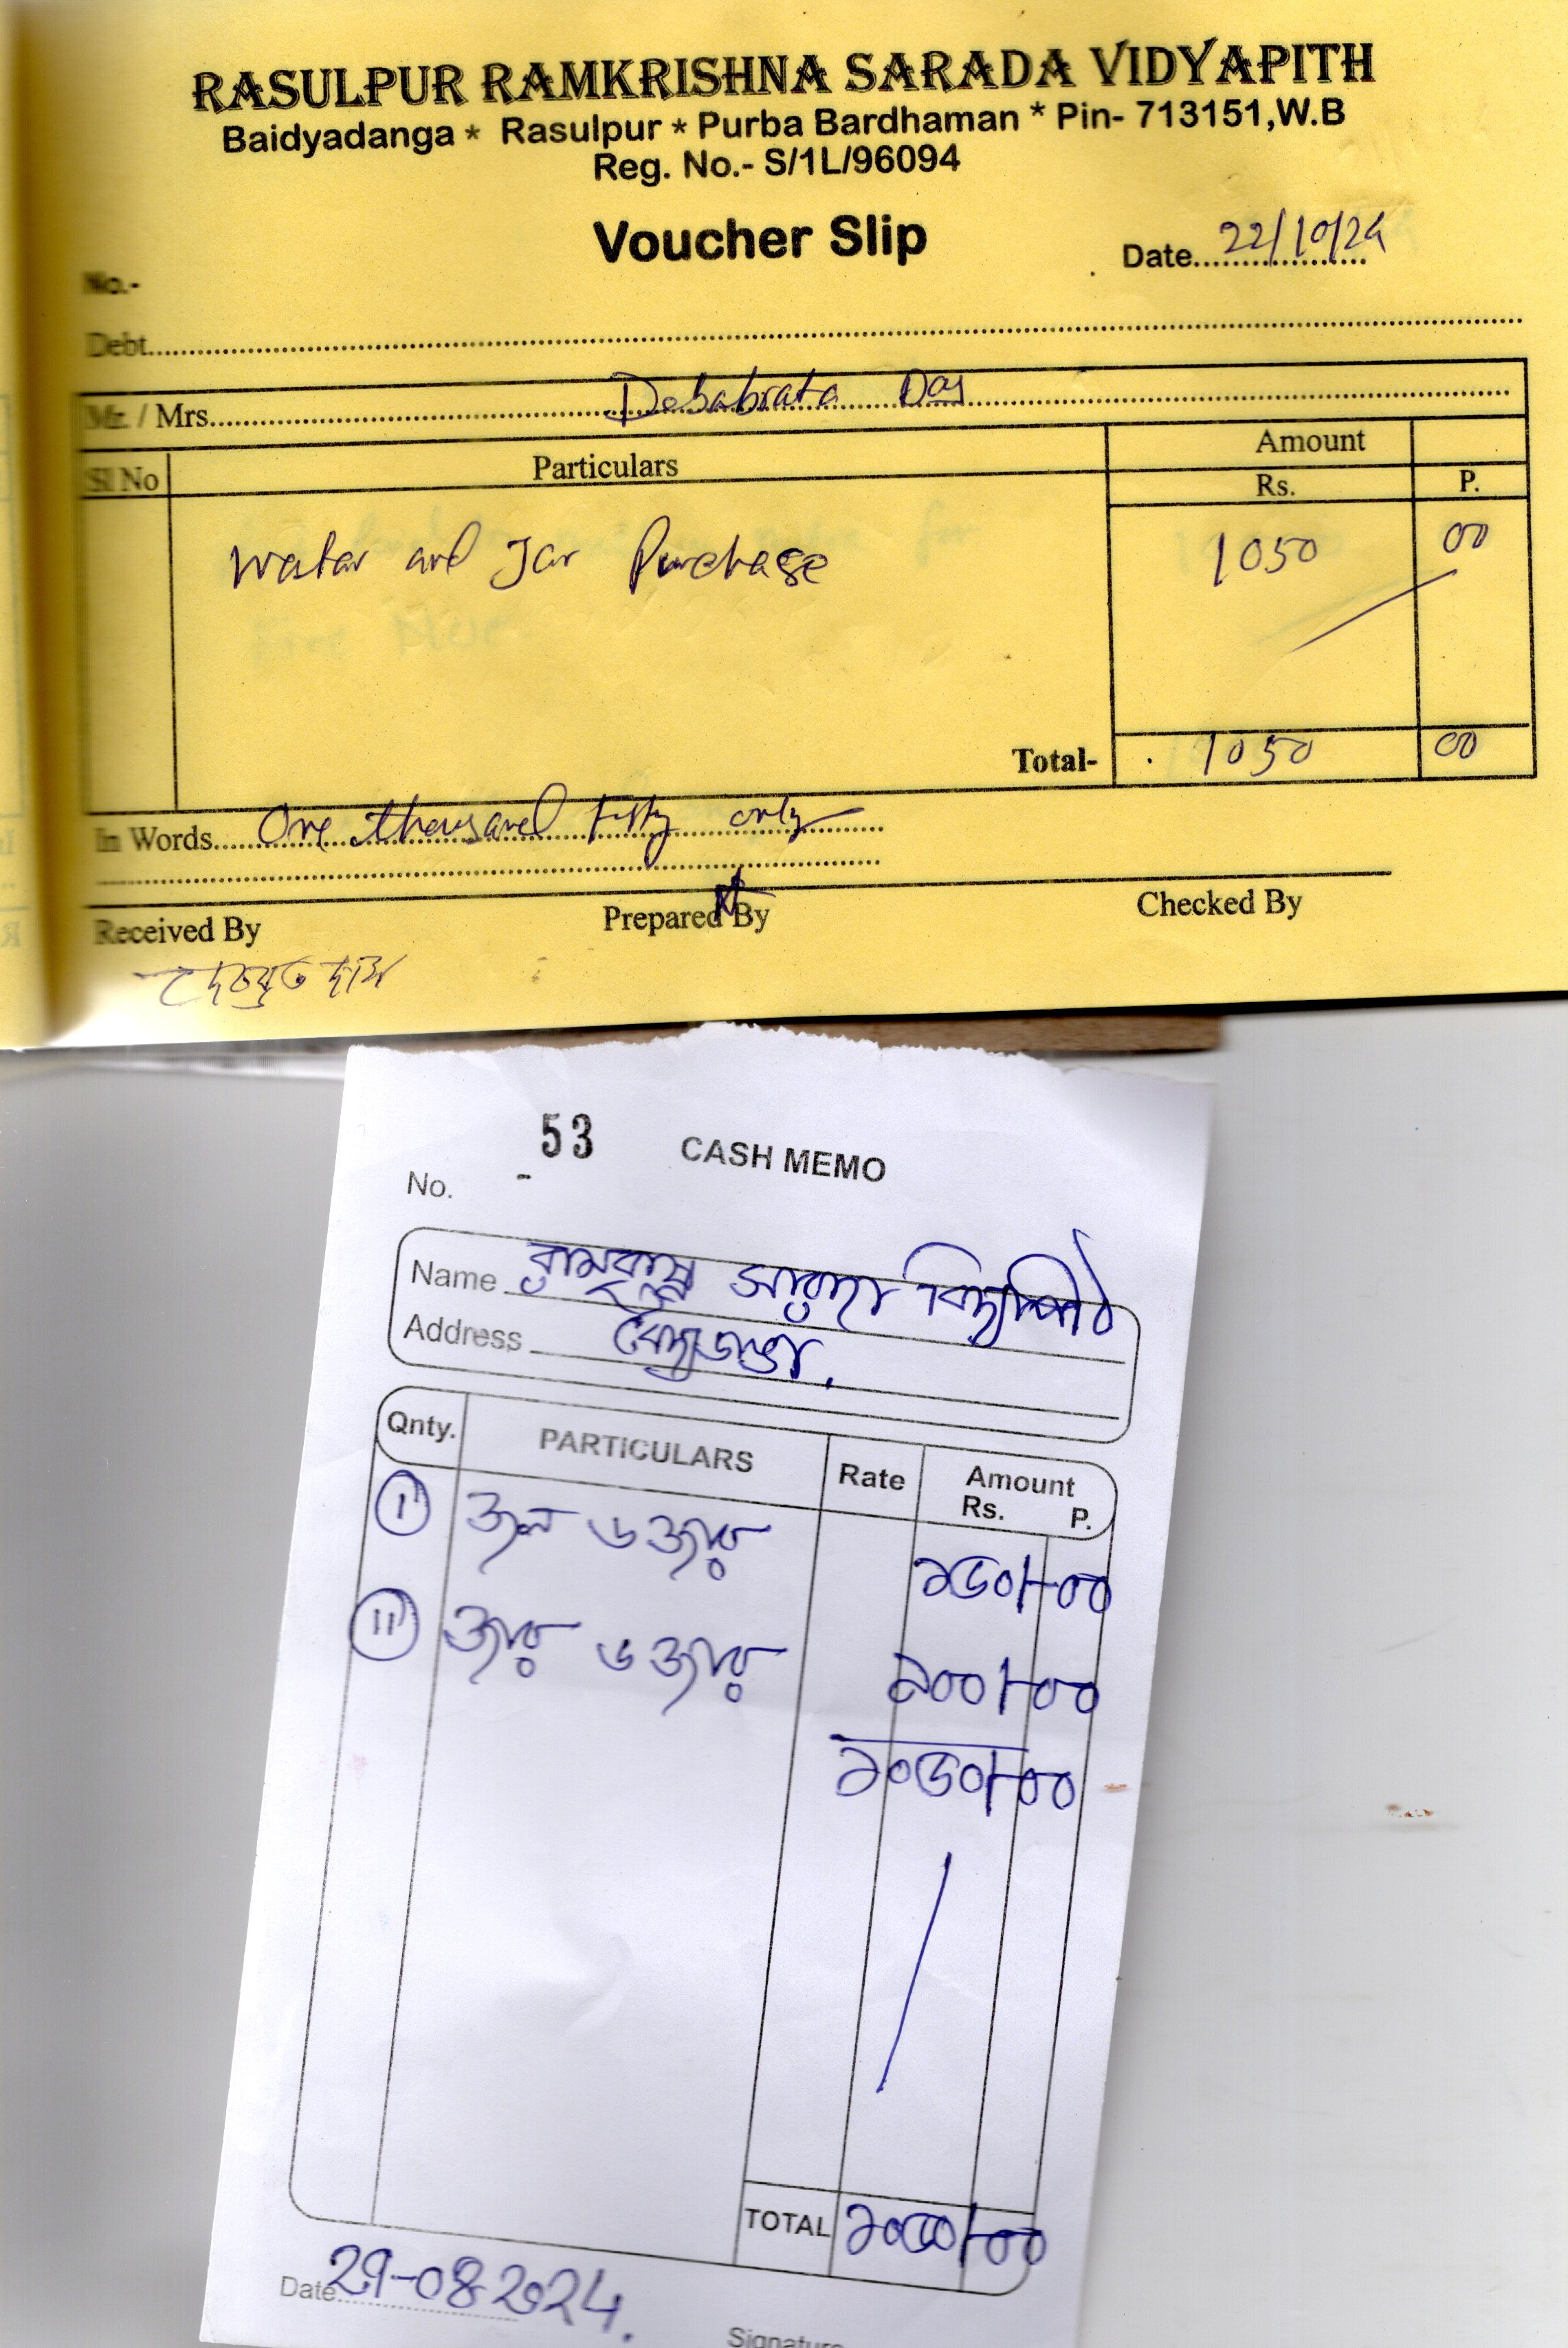 RASULPUR RAMKRISHNA SARADA VIDYAPITH
Baidyadanga * Rasulpur * Purba Bardhaman * Pin- 713151,W.B
Reg. No.- S/1L/96094
Voucher Slip
Date 22/10/24
No.-
Debt
Mr. / Mrs. Debabrata Das
Sl No Particulars Amount
Rs. P.
Water and Jar Purchase 1050 00
Total- 1050 00
In Words One thousand fifty only
Received By Prepared By Checked By
দেবব্রত দাস
53 CASH MEMO
No.
Name রামকৃষ্ণ সারদা বিদ্যাপীঠ
Address বৈদ্যডাঙা.
Qnty. PARTICULARS Rate Amount
Rs. P.
I জল ৬ জার ১৫০/-০০
II জার ৬ জার ৯০০/-০০
১০৫০/-০০
TOTAL ১০৫০/-০০
Date 29-08-2024.
Signature